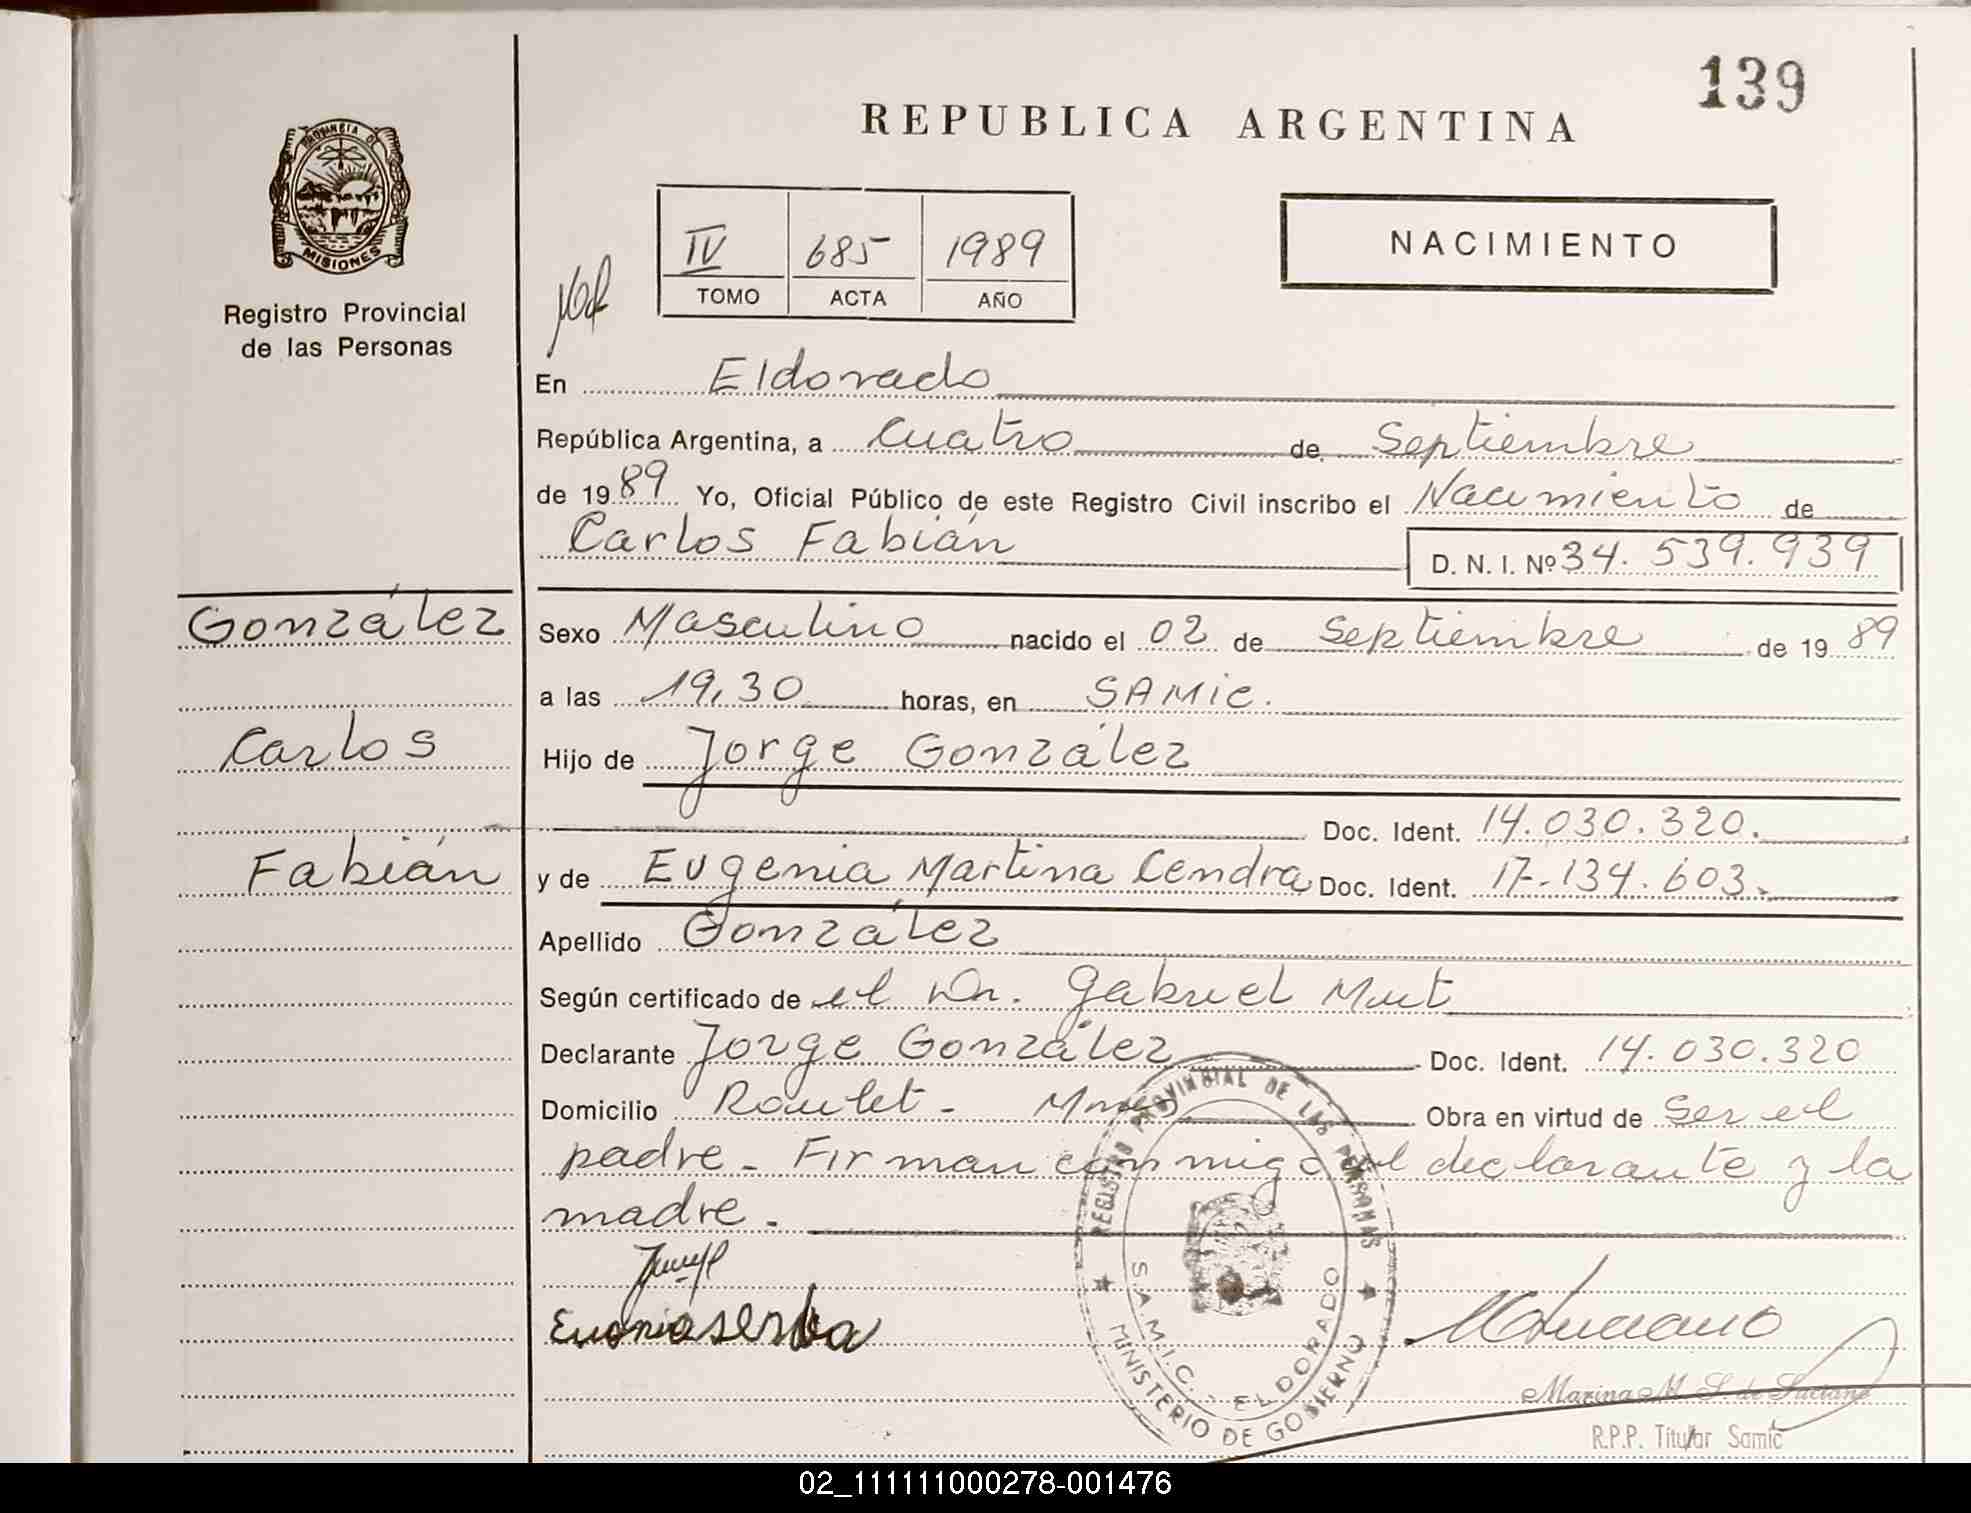 139
REPUBLICA ARGENTINA
PROVINCIA DE
MISIONES
Registro Provincial
de las Personas
IV 685 1989
TOMO ACTA AÑO
NACIMIENTO
En Eldorado
República Argentina, a Cuatro de Septiembre
de 1989 Yo, Oficial Público de este Registro Civil inscribo el Nacimiento de
Carlos Fabián D. N. I. Nº 34.539.939
González
Carlos
Fabián
Sexo Masculino nacido el 02 de Septiembre de 1989
a las 19,30 horas, en SAMIC.
Hijo de Jorge González
Doc. Ident. 14.030.320.
y de Eugenia Martina Cendra Doc. Ident. 17.134.603.
Apellido González
Según certificado de el Dr. Gabriel Mut
Declarante Jorge González Doc. Ident. 14.030.320
Domicilio Roulet - Mnes Obra en virtud de ser el
padre - Firman conmigo el declarante y la
madre.
REGISTRO PROVINCIAL DE LAS PERSONAS
S.A.M.I.C. - ELDORADO
MINISTERIO DE GOBIERNO
Marina M. S. de Luciano
R.P.P. Titular Samic
02_111111000278-001476